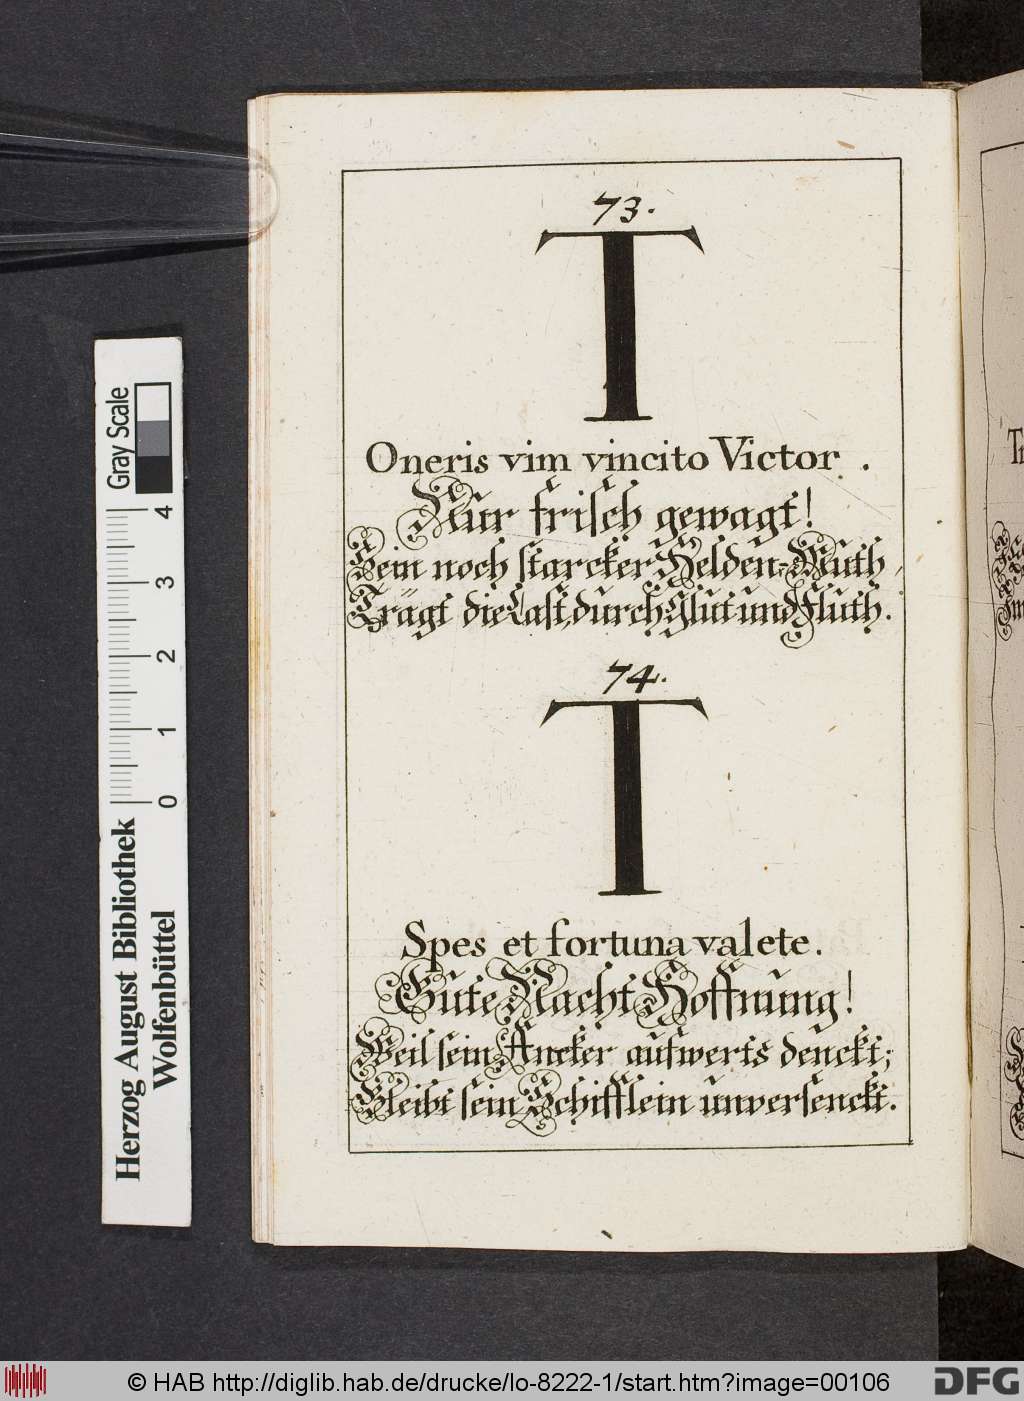 73.
T
Oneris vim vincito Victor.
Nur frisch gewagt!
Sein noch starcker Helden-Muth,
Trägt die Last, durch Glut und Fluth.
74.
T
Spes et fortuna valete.
Gute Nacht Hoffnung!
Weil sein Ancker aufwerts denckt;
Bleibt sein Schifflein unversenckt.
Gray Scale
4
3
2
1
0
Herzog August Bibliothek
Wolfenbüttel
© HAB http://diglib.hab.de/drucke/lo-8222-1/start.htm?image=00106
DFG